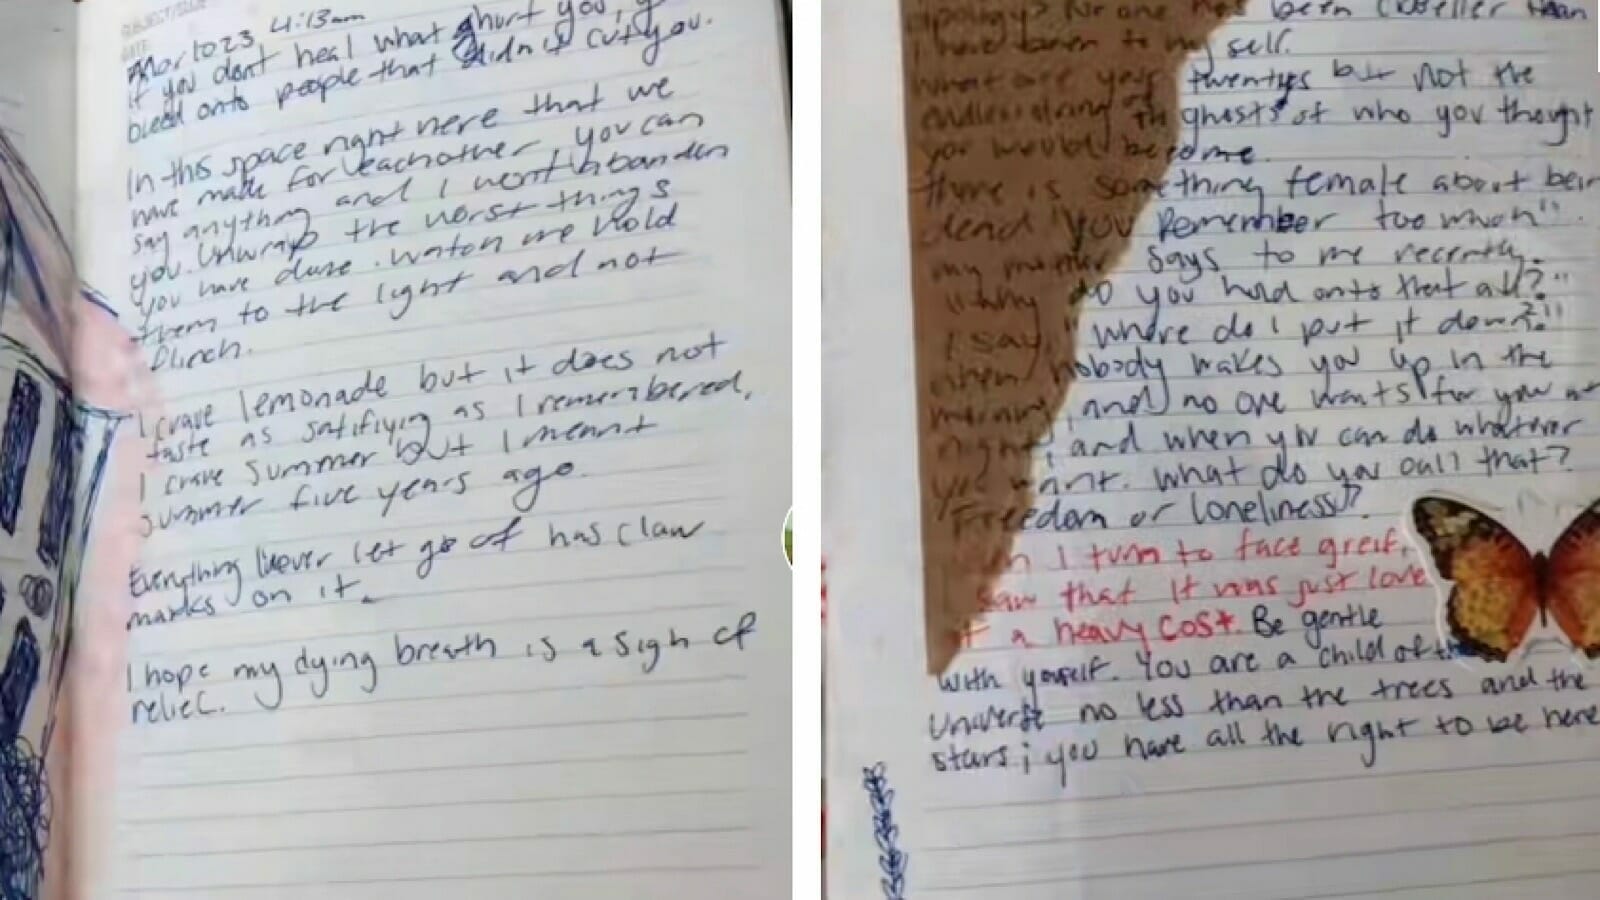 SUBJECT/
DATE:
Mar 10 23 4:13am
if you don't heal what hurt you,
bleed onto people that didn't cut you.
In this space right here that we
have made for eachother, you can
say anything and I won't abandon
you. Unwrap the worst things
you have done. Watch me hold
them to the light and not
flinch.
I crave lemonade but it does not
taste as satifiying as I remembered.
I crave summer but I meant
summer five years ago.
Everything I never let go of has claw
marks on it.
I hope my dying breath is a sigh of
relief.
apology? No one has been crueller than
I have been to my self.
what are your twentys but not the
endless string of the ghosts of who you thought
you would become.
there is something female about bein
dead "you Remember too much".
my mother says to me recently.
"Why do you hold onto that all?"
I say "where do I put it down?"
when nobody wakes you up in the
morning, and no one waits for you at
night, and when you can do whatever
you want. what do you call that?
Freedom or loneliness?
I turn to face greif,
saw that it was just love
at a heavy cost. Be gentle
with yourself. You are a child of th
Universe no less than the trees and the
stars; you have all the right to be here